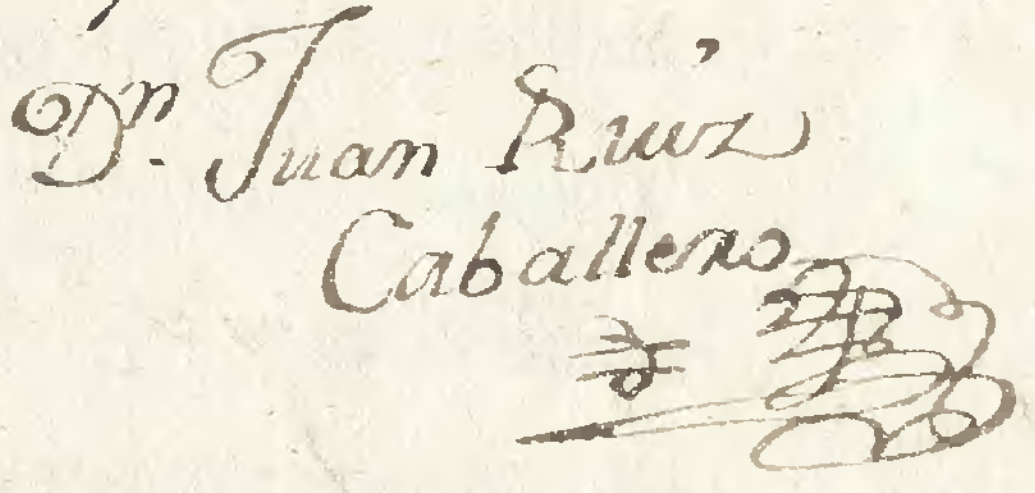 Dn. Juan Ruiz
Caballero